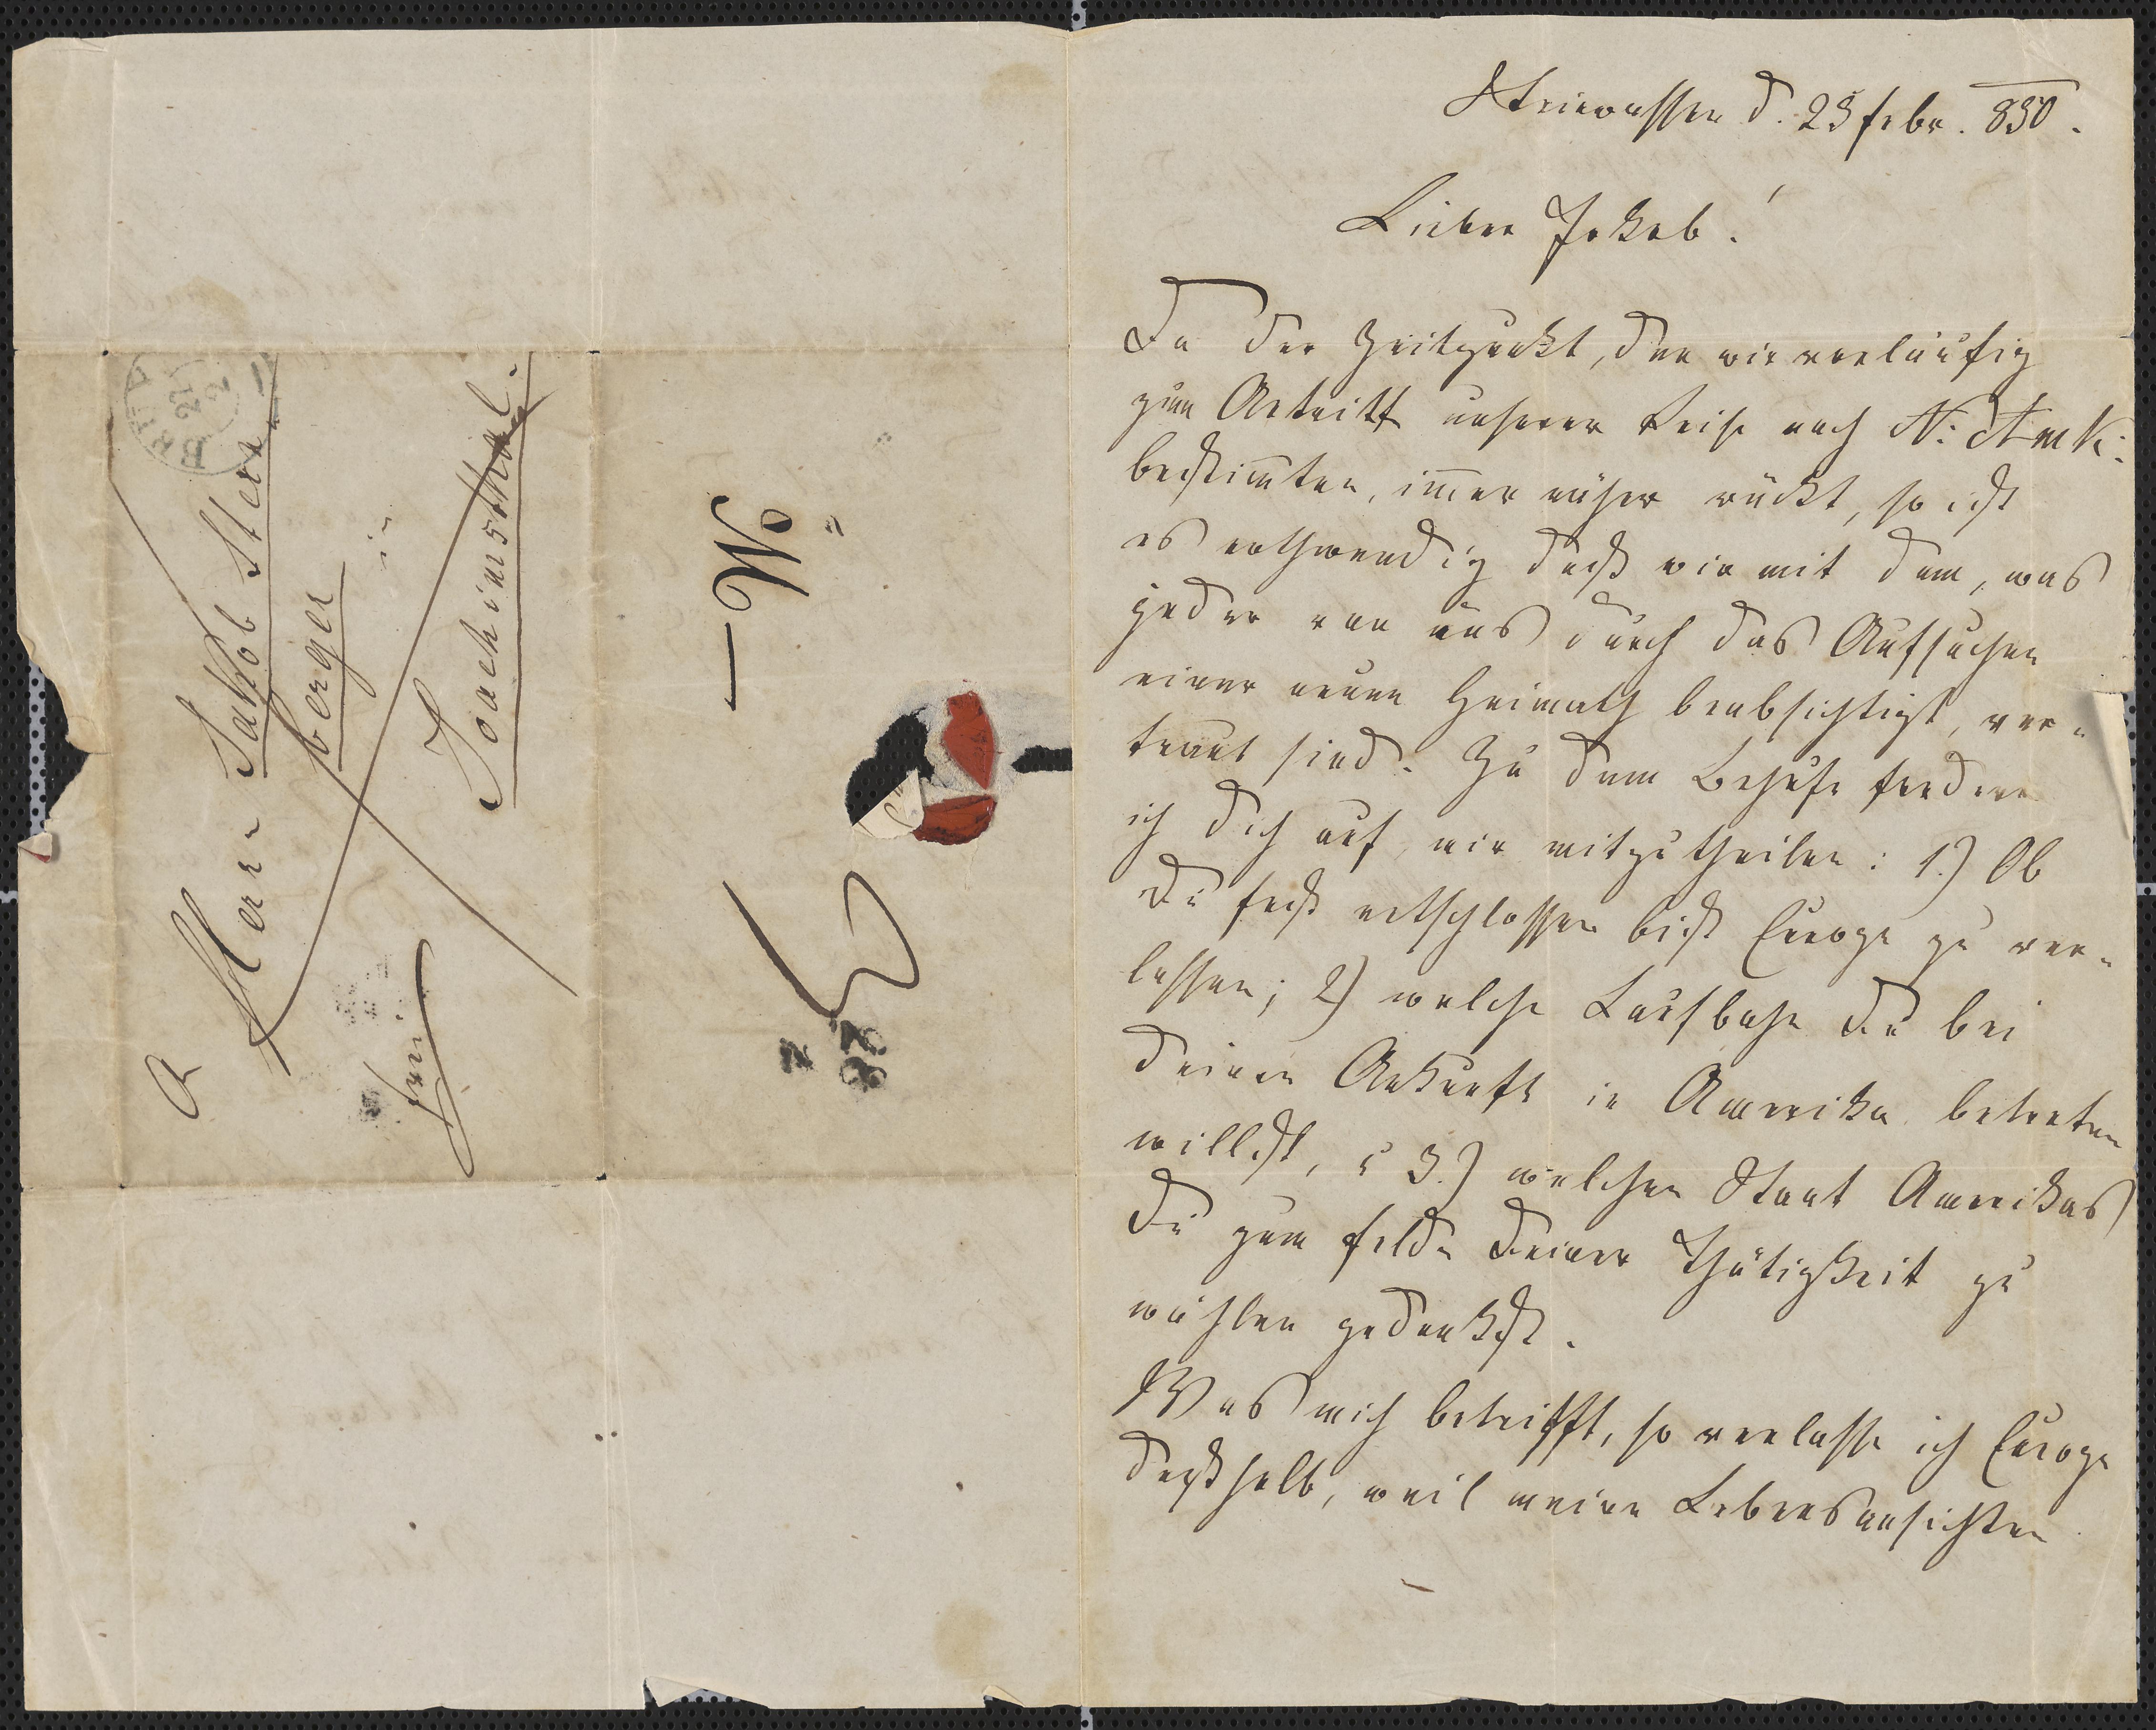 Herrn Jakob Stern
berger
in
Joachimsthal.
frei
W
28
2
Steinwasser d. 23 febr. 850.
Lieber Jakob!
Da der Zeitpunkt, den wir vorläufig
zum Antritt unserer Reise nach N: Amk:
bestim̄ten, im̄er näher rückt, so ist
es nothwendig daß wir mit dem, was
jeder von uns durch das Aufsuchen
einer neuen Heimath beabsichtigt, ver-
traut sind. Zu dem Behufe fordere
ich dich auf, mir mitzutheilen: 1.) Ob
Du fest entschlossen bist Europa zu ver-
lassen; 2) welche Laufbahn Du bei
deiner Ankunft in Amerika betreten
willst, u 3.) welchen Staat Amerikas
Du zum Felde Deiner Thätigkeit zu
wählen gedenkst.
Was mich betrifft, so verlasse ich Europa
deßhalb, weil meine Lebensansichten